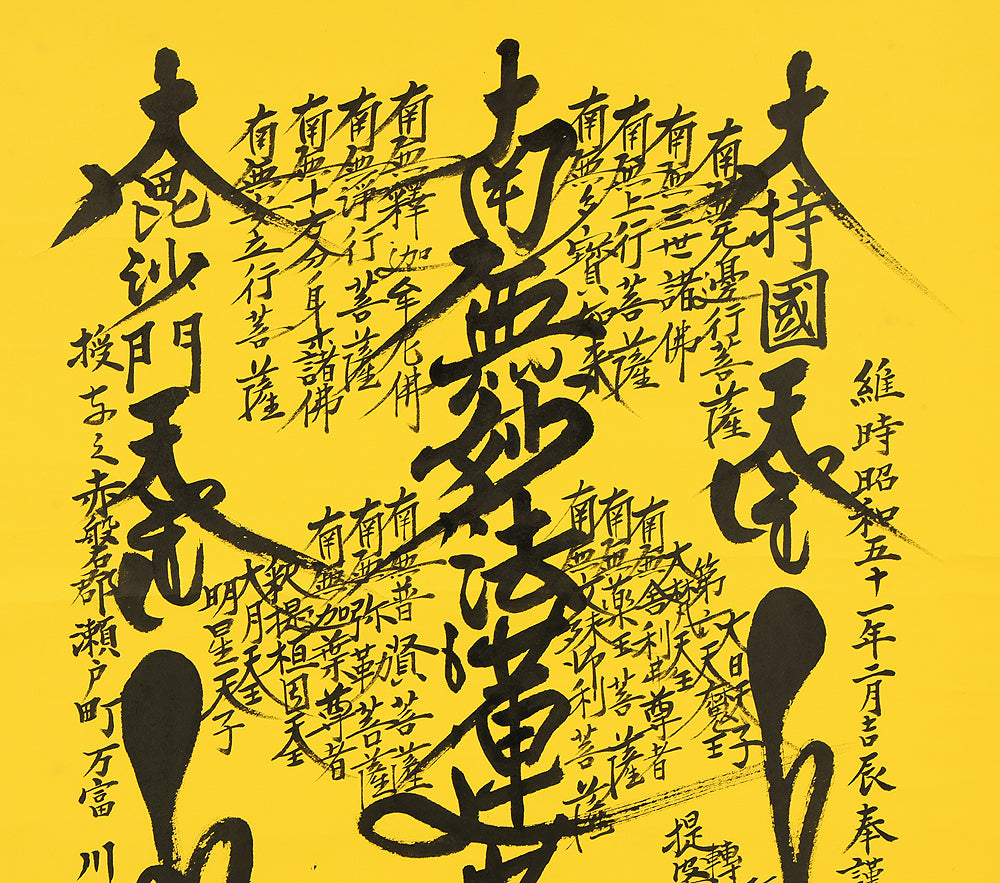 維時昭和五十一年二月吉辰奉謹
大持國天王
南無无邊行菩薩
南無三世諸佛
南無上行菩薩
南無多寶如来
大日天子
第六天魔王
大梵天王
南無舎利弗尊者
南無薬王菩薩
南無文殊師利菩薩
轉
提婆
南無妙法蓮
南無釋迦牟尼佛
南無浄行菩薩
南無十方分身来諸佛
南無安立行菩薩
南無普賢菩薩
南無弥勒菩薩
南無迦葉尊者
釈提桓因天王
大月天王
明星天子
大毘沙門天王
授与之赤磐郡瀬戸町万富川